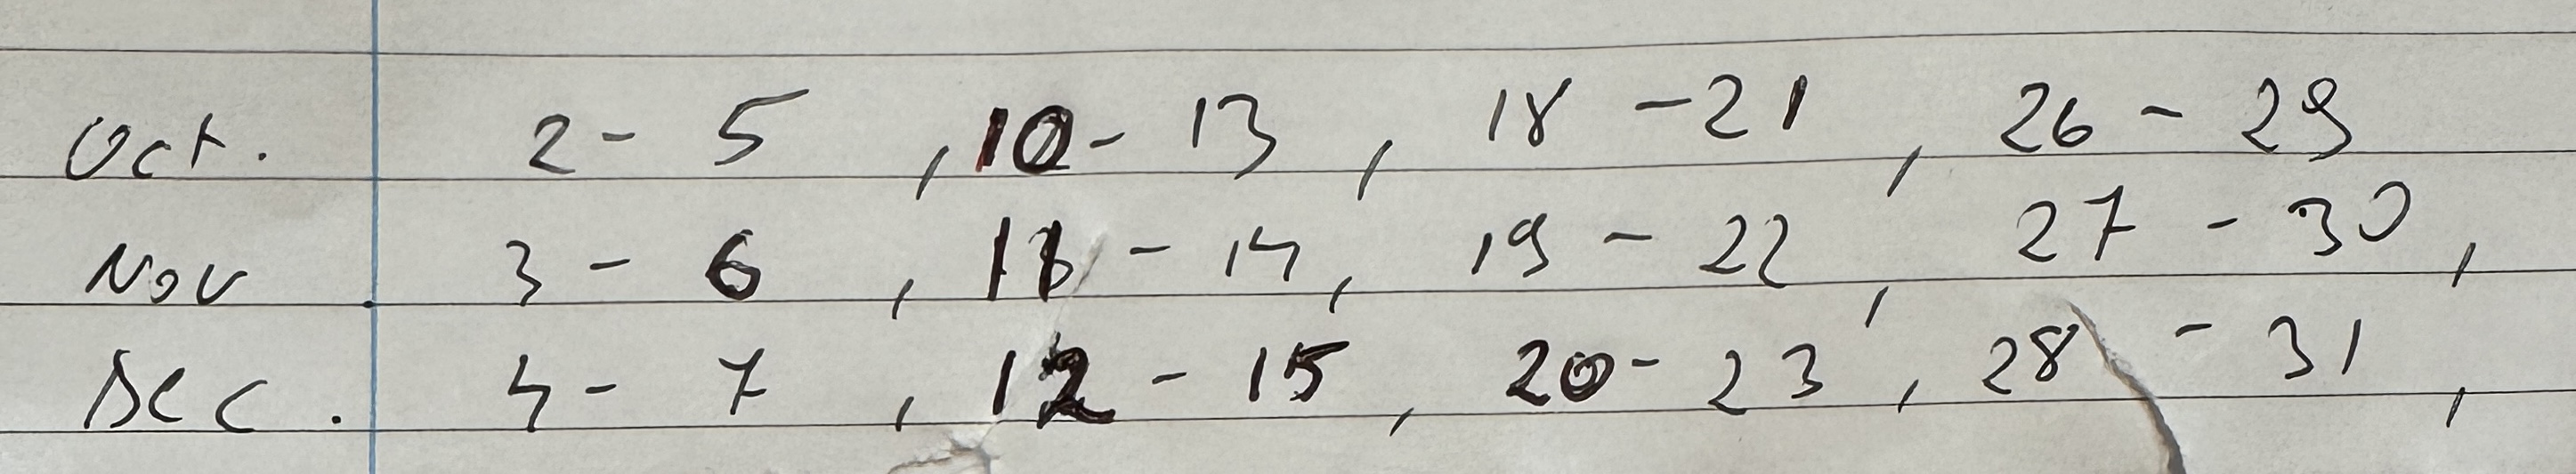 Oct. 2 - 5 , 10 - 13 , 18 - 21 , 26 - 29
Nov 3 - 6 , 11 - 14 , 19 - 22 , 27 - 30 ,
Dec . 4 - 7 , 12 - 15 , 20 - 23 , 28 - 31 ,